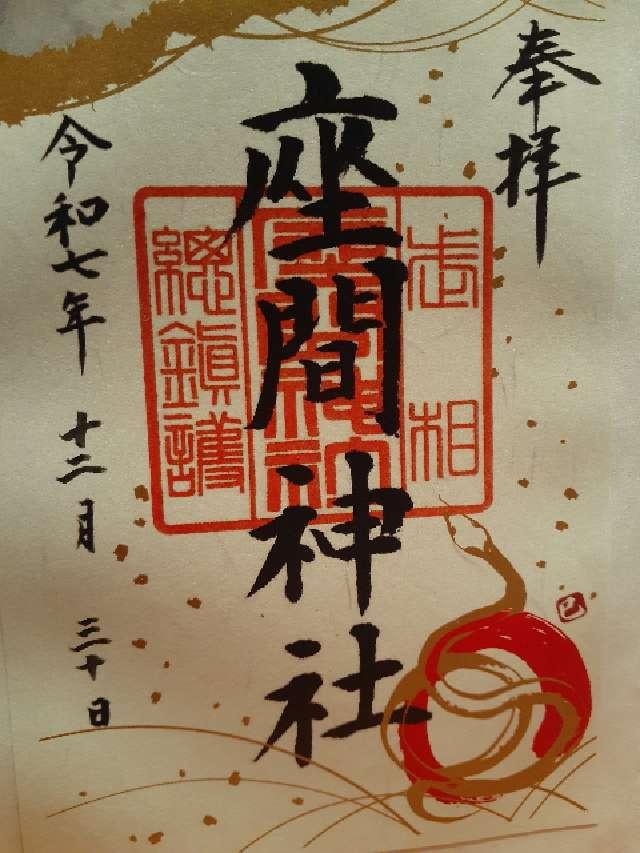 奉拝
相武
座間神社
總鎮護
座間神社
令和七年 十二月 三十日
巳